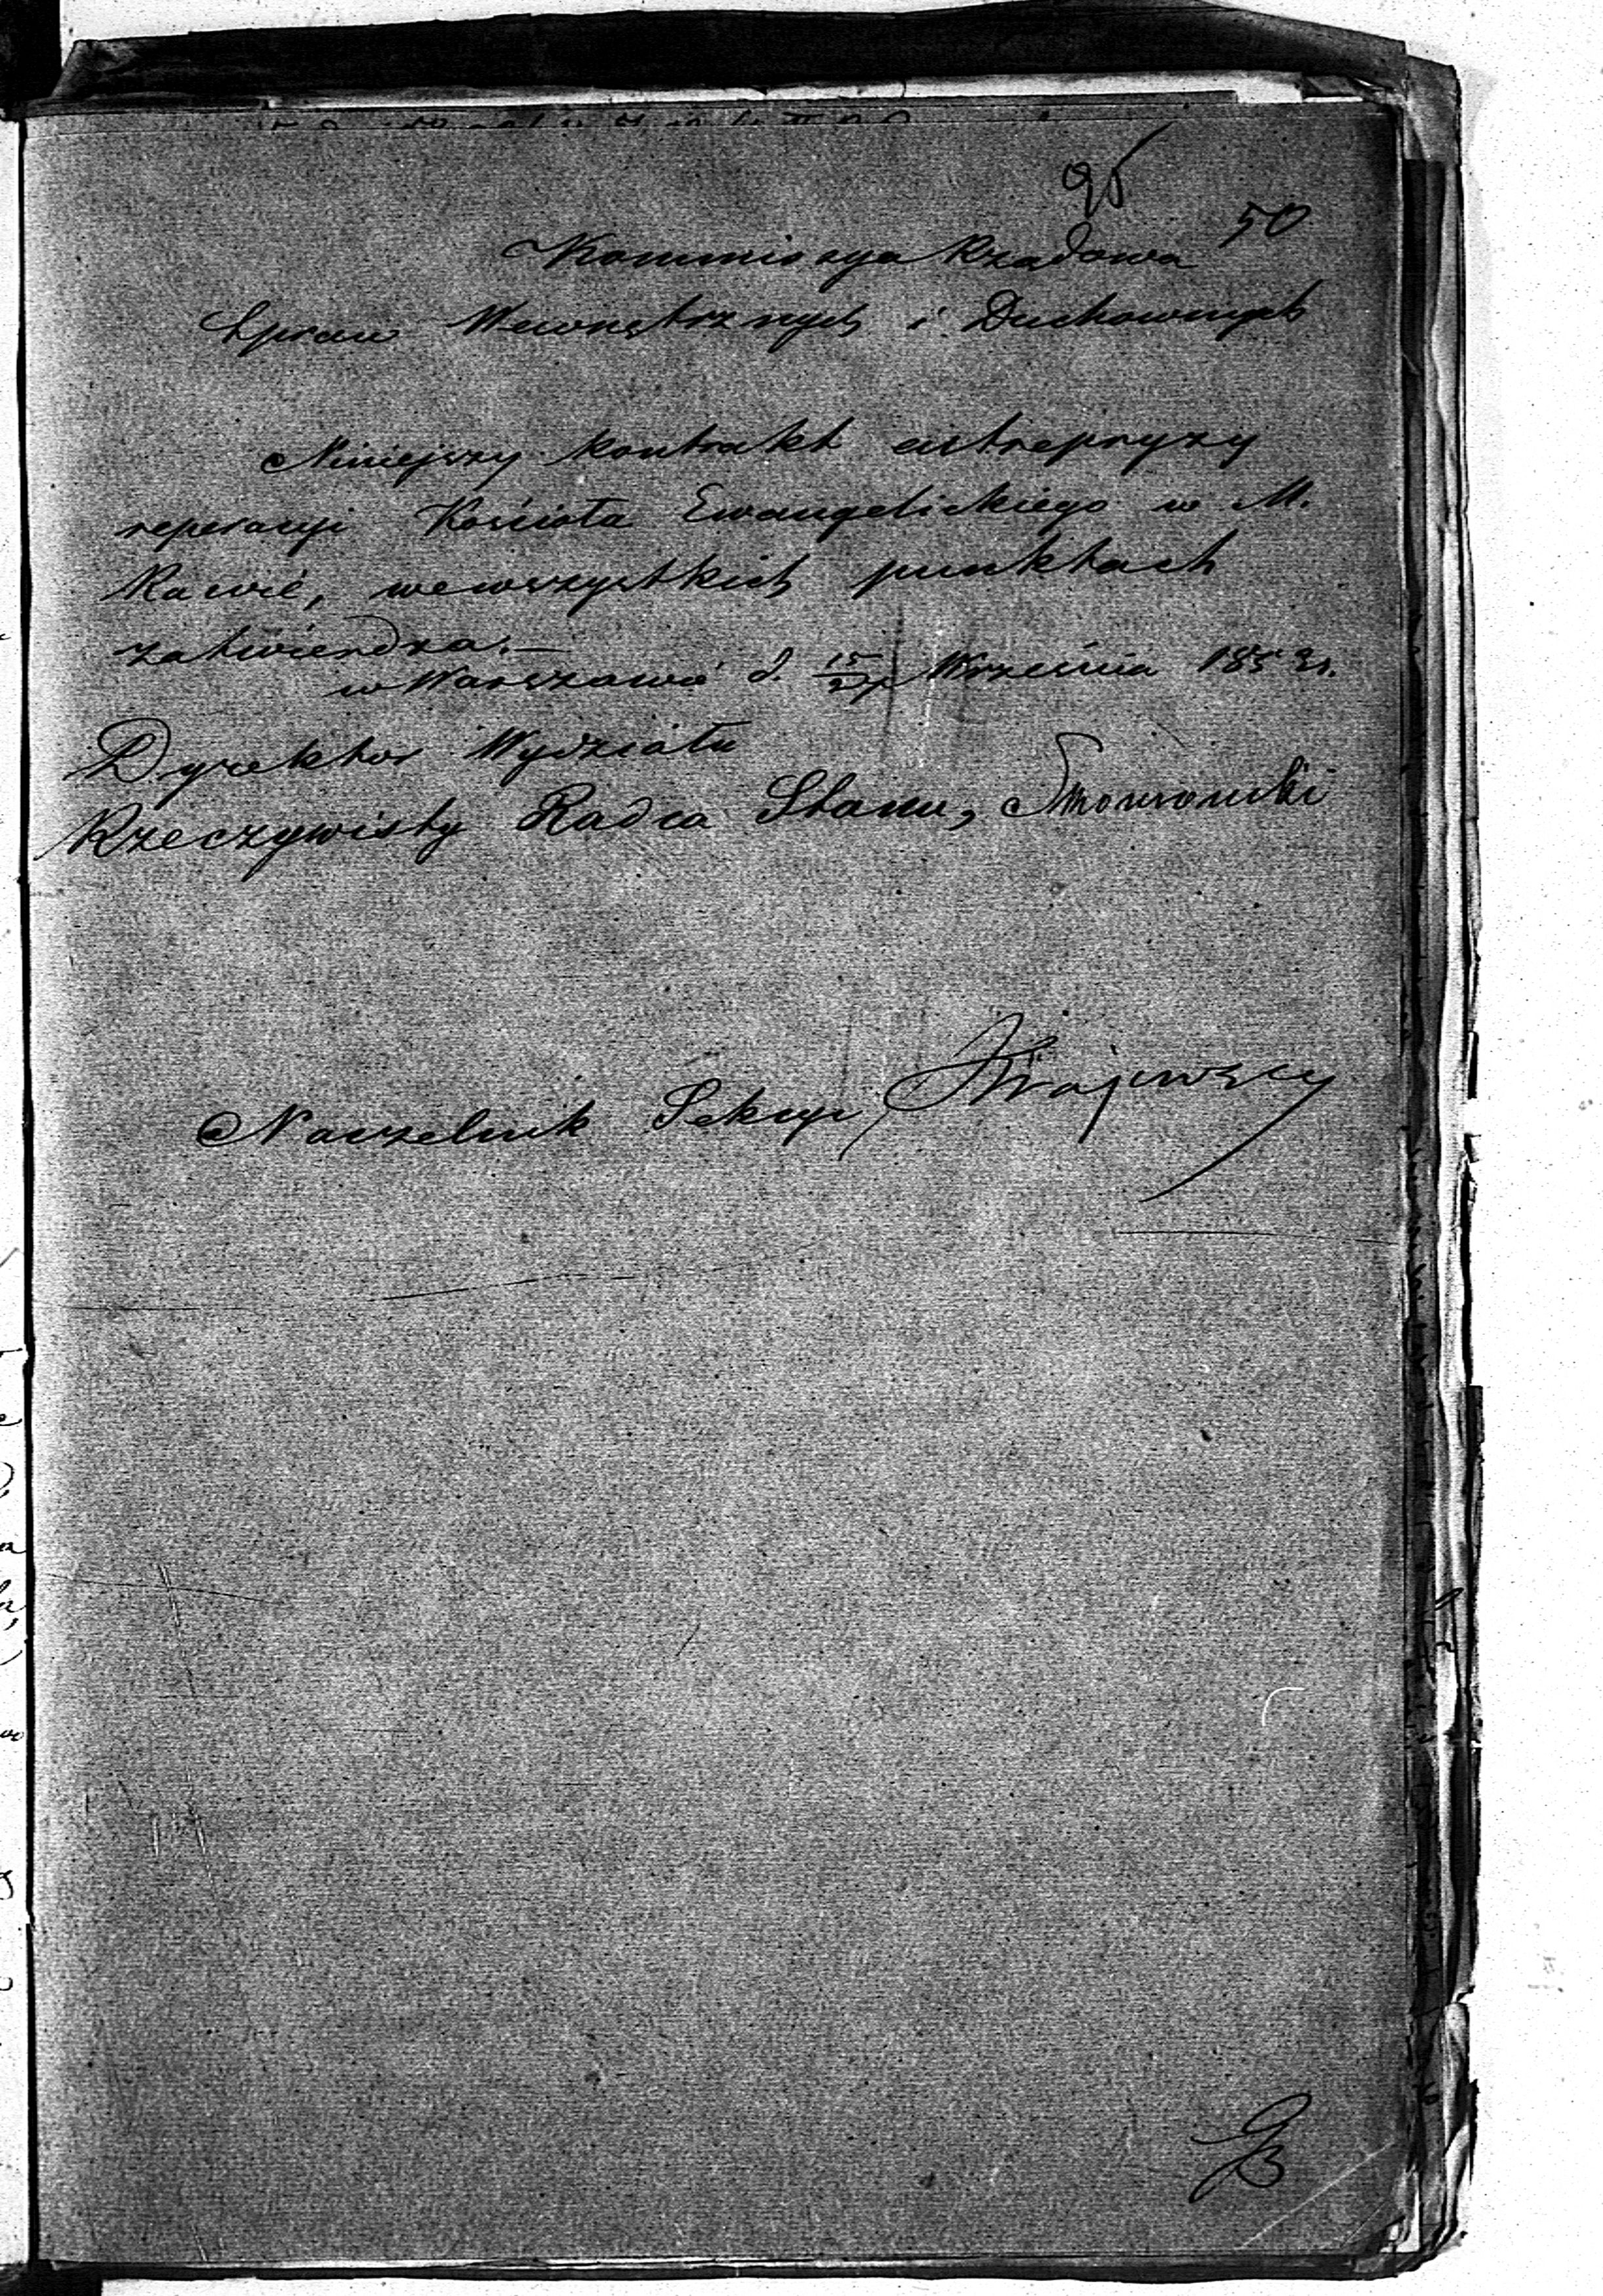 95
50
Kommissya Rządowa
Spraw Wewnętrznych i Duchownych
Niniejszy kontrakt entrepryzy
reperacyi Kościoła Ewangelickiego w M.
Rawie, wewszystkich punktach
zatwierdza.—
w Warszawie d. 15/27 Września 1853 r.
Dyrektor Wydziału
Rzeczywisty Radca Stanu,
Naczelnik Sekcyi, Krajewski